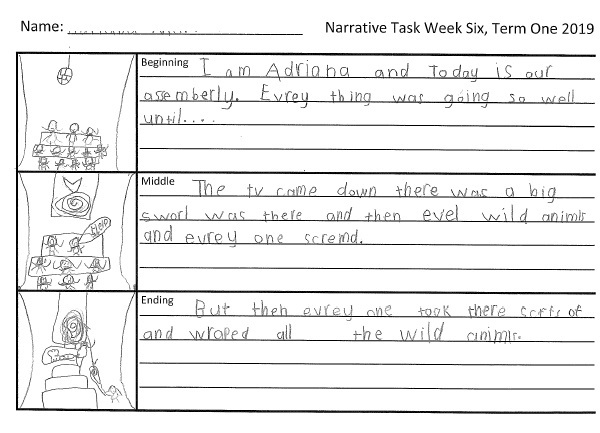 Name:
Narrative Task Week Six, Term One 2019
Beginning
I am Adriana and Today is our
assembly. Evrey thing was going so well
until....
Middle
The tv came down there was a big
sworl was there and then evel wild animls
and evrey one scremd.
Help
Ending
But then evrey one took there scrfs of
and wraped all the wild animls.